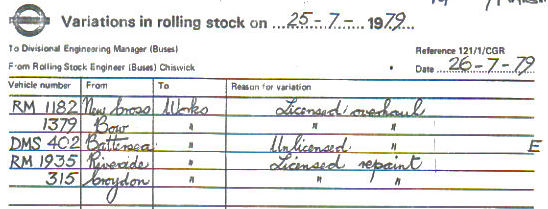 Variations in rolling stock on 25-7-1979
To Divisional Engineering Manager (Buses) Reference 121/1/CGR
From Rolling Stock Engineer (Buses) Chiswick Date 26-7-79
Vehicle number From To Reason for variation
RM 1182 New Cross Works Licensed overhaul
1379 Bow " " "
DMS 402 Battersea " Unlicensed " E
RM 1935 Riverside " Licensed repaint
315 Croydon " " "